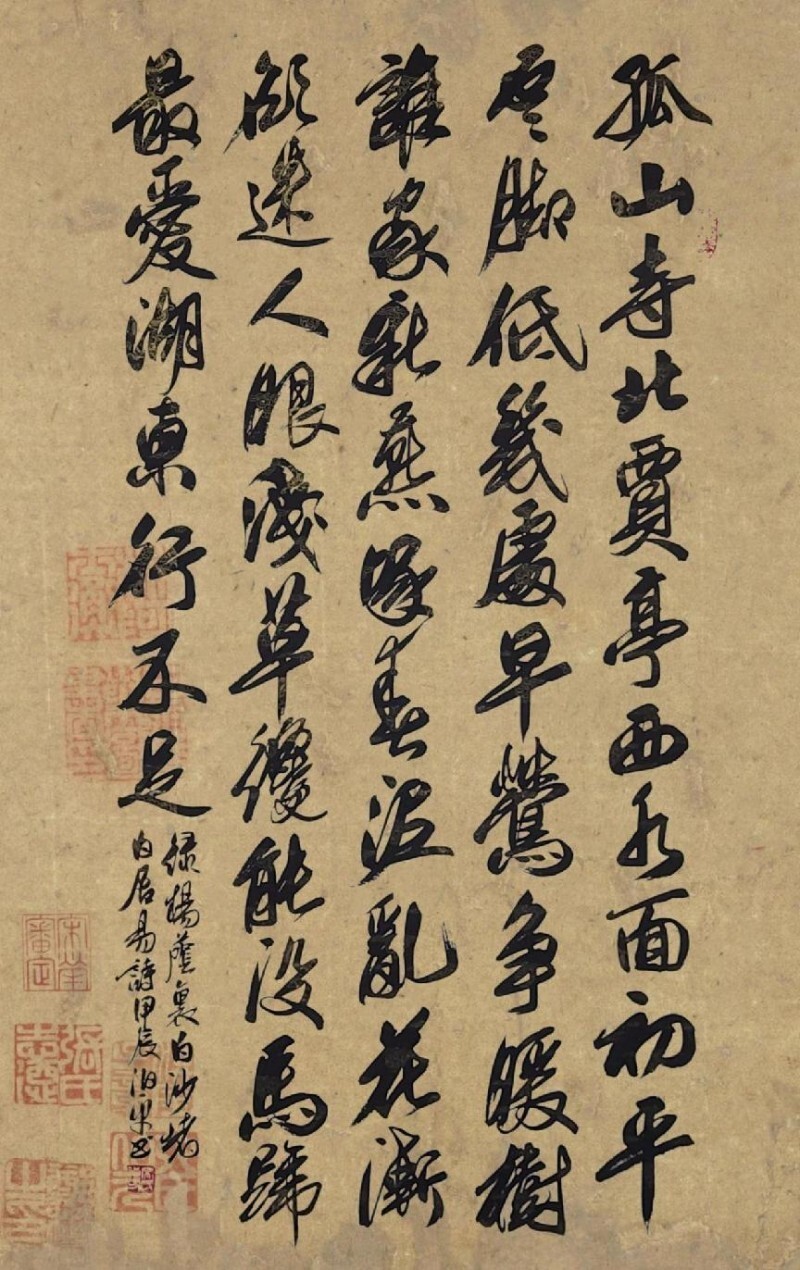 孤山寺北賈亭西水面初平
雲脚低幾處早鶯争暖樹
誰家新燕啄春泥亂花漸
欲迷人眼淺草纔能没馬蹄
最愛湖東行不足
緑楊蔭裏白沙堤
白居易詩甲辰泊书
宋犖審定